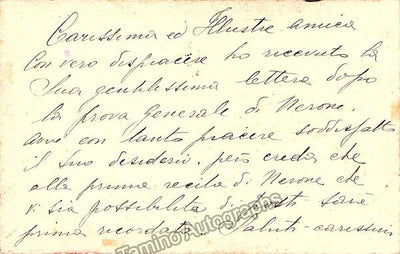 Carissima ed Illustre amica
Con vero dispiacere ho ricevuto la
Sua gentilissima lettera dopo
la prova generale di Nerone.
avrei con tanto piacere soddisfatto
il suo desiderio, però creda che
alla prima recita di Nerone che
vi sia possibilità di posti sarà
prima ricordata. Saluti carissimi
Tamino Autographs